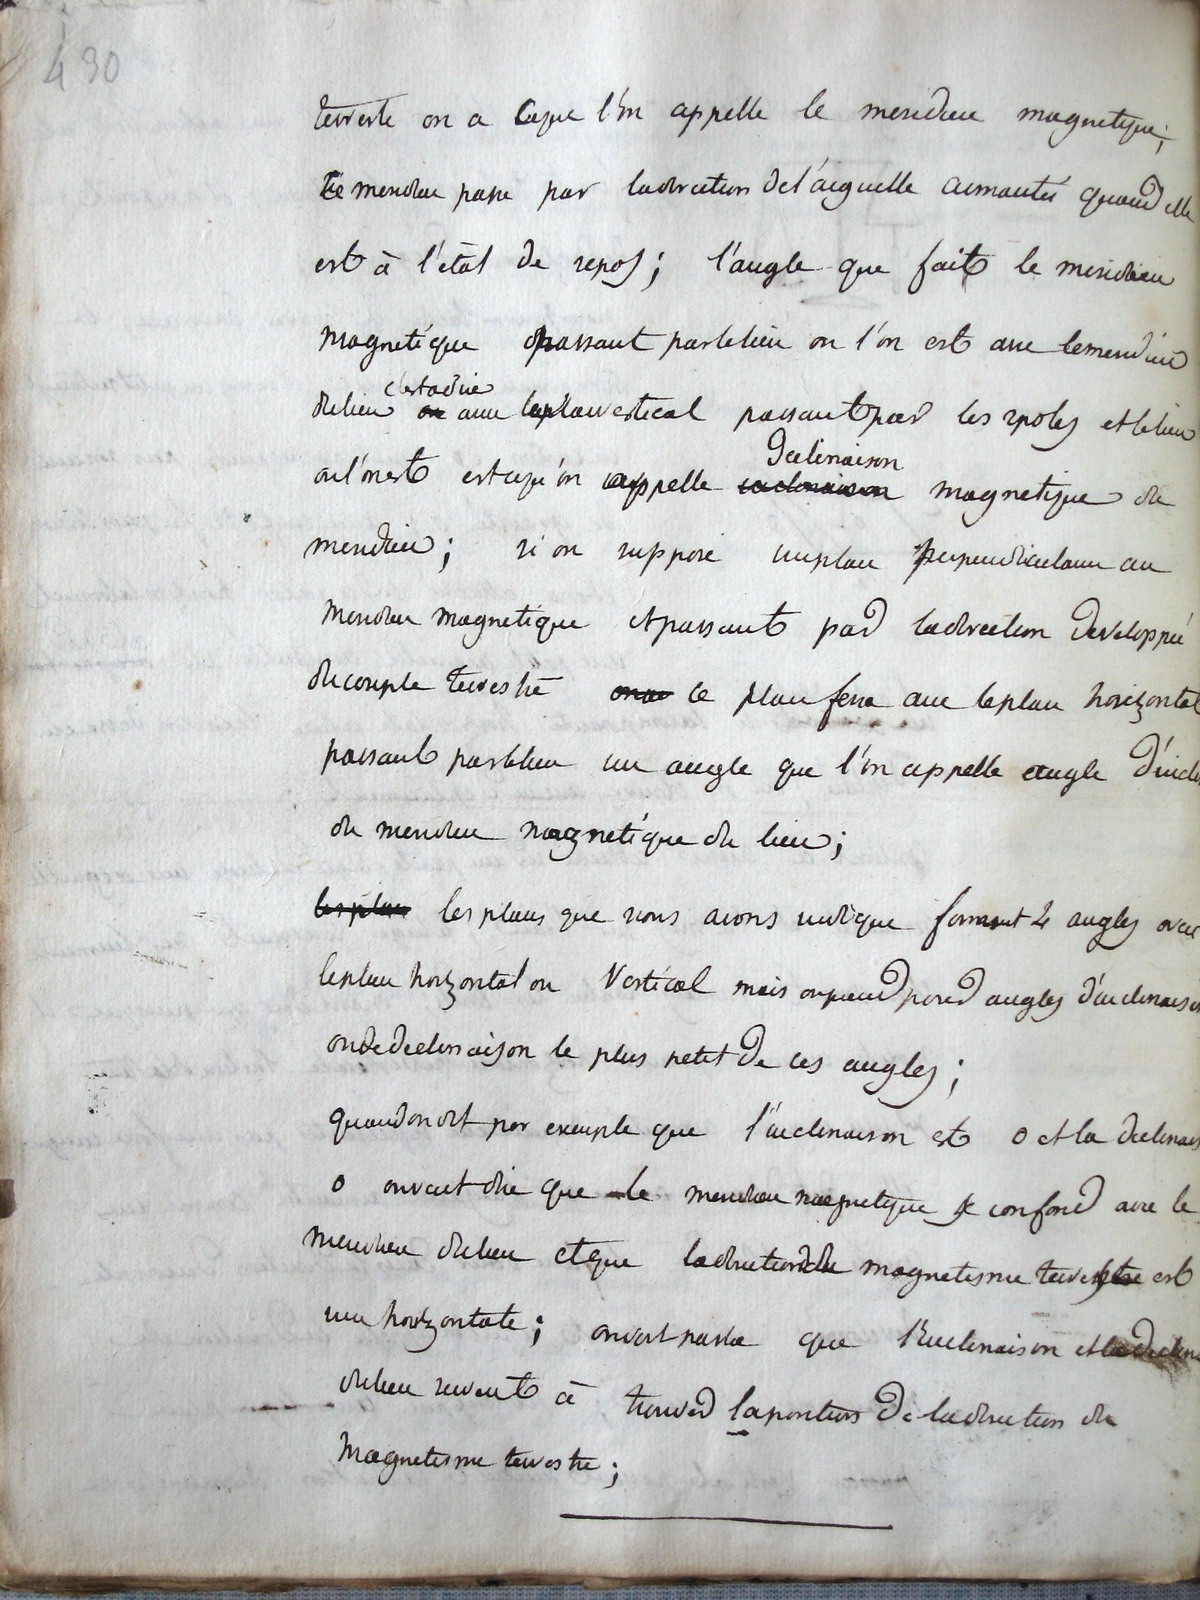 490
terrestre on a ceque l'on appelle le meridien magnetique;
ce meridien passe par ladirection del'aiguille aimantée quand elle
est à l'état de repos; l'angle que fait le meridien
magnetique passant parlelieu ou l'on est avec lemeridien
dulieu c'estadire
avec leplan vertical passant par les 2 poles et lelieu
oul'onest estcequ'on appelle declinaison magnetique du
meridien; si on suppose unplan perpendiculaire au
meridien magnetique etpassant par ladirection developpée
ducouple terrestre ce plan fera avec leplan horizontal
passant parlelieu un angle que l'on appelle angle d'incli
du meridien magnetique du lieu;
les plans que nous avons indique forment 4 angles avec
leplan horizontal ou vertical mais onprend pour angles d'inclinaison
oudedeclinaison le plus petit de ces angles;
quandondit par exemple que l'inclinaison est 0 et la declinais
0 onveut dire que le meridien magnetique se confond avec le
meridien dulieu etque ladirection du magnetisme terrestre est
une horizontale; onvoit parla que l'inclinaison et la declina
dulieu revient à trouver laposition de ladirection du
magnetisme terrestre;